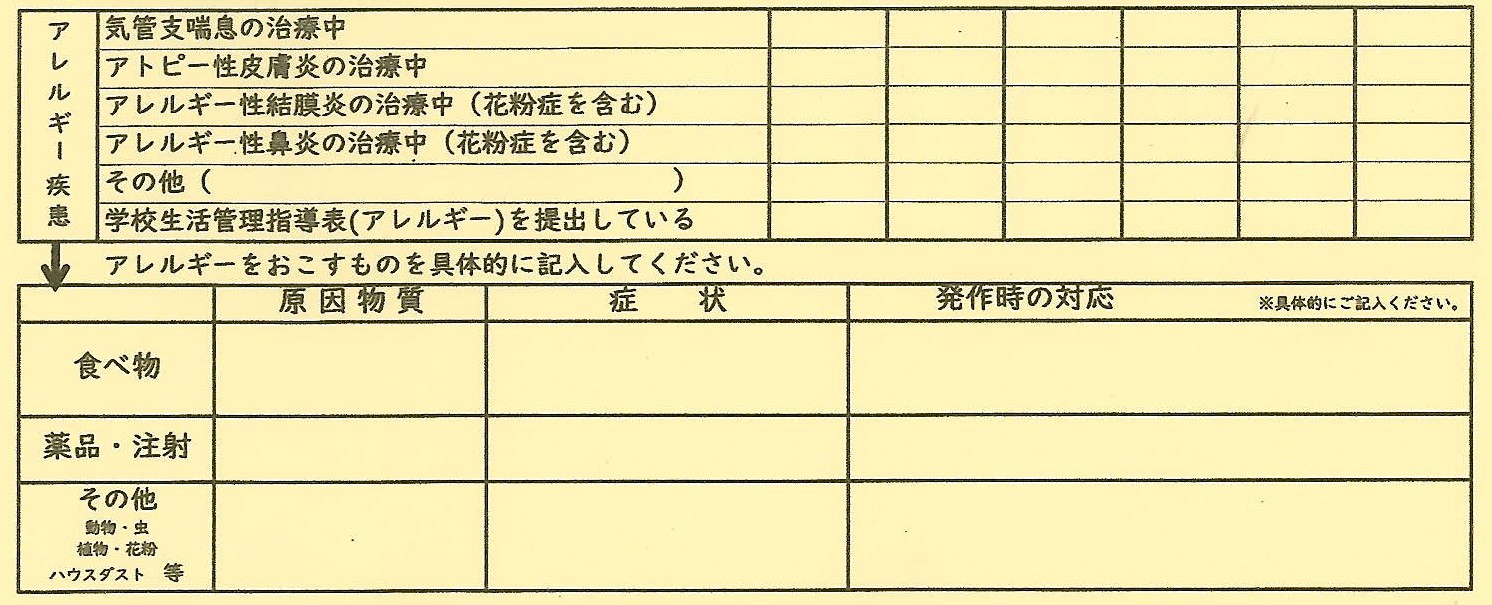 アレルギー疾患
気管支喘息の治療中
アトピー性皮膚炎の治療中
アレルギー性結膜炎の治療中（花粉症を含む）
アレルギー性鼻炎の治療中（花粉症を含む）
その他（　　　　　　　　　　　　　　　　　）
学校生活管理指導表(アレルギー)を提出している
アレルギーをおこすものを具体的に記入してください。
原因物質　症　状　発作時の対応　※具体的にご記入ください。
食べ物
薬品・注射
その他
動物・虫
植物・花粉
ハウスダスト　等